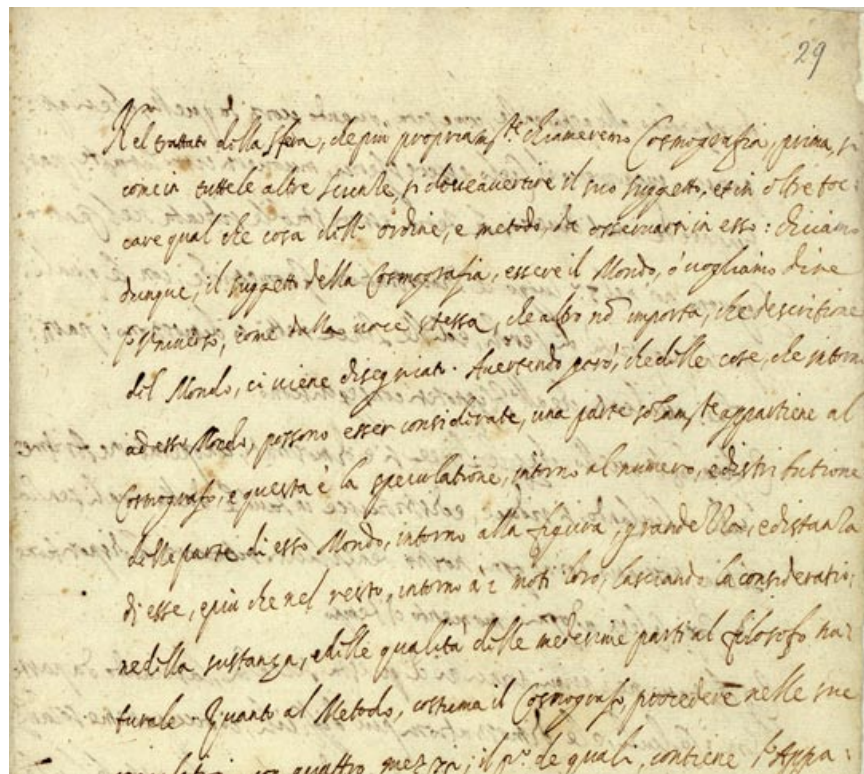 29
Nel trattato della sfera, che più propriam.te chiameremo Cosmografia, prima, si
come in tutte le altre scienze, si deve avertire il suo suggetto, et in oltre toc
care qual che cosa dell' ordine, e metodo, da osservarsi in esso: diciamo
dunque, il suggetto della Cosmografia, essere il Mondo, ò vogliamo dire
l'Universo, come dalla voce stessa, che altro nõ importa, che descritione
del Mondo, ci viene disegniato. Avertendo però, che delle cose, che intorno
ad esso Mondo, possono esser considerate, una parte solam.te appartiene al
Cosmografo, e questa è la speculatione, intorno al numero, e distributione
delle parte di esso Mondo, intorno alla figura, grandezza, e distanza
di esse, e più che nel resto, intorno a i moti loro, lasciando la consideratio:
ne della sustanza, e delle qualità delle medesime parti al filosofo na:
turale. Quanto al Metodo, costuma il Cosmografo, procedere nelle sue
con quattro mezza; il p.o de quali, contiene l'Appa: